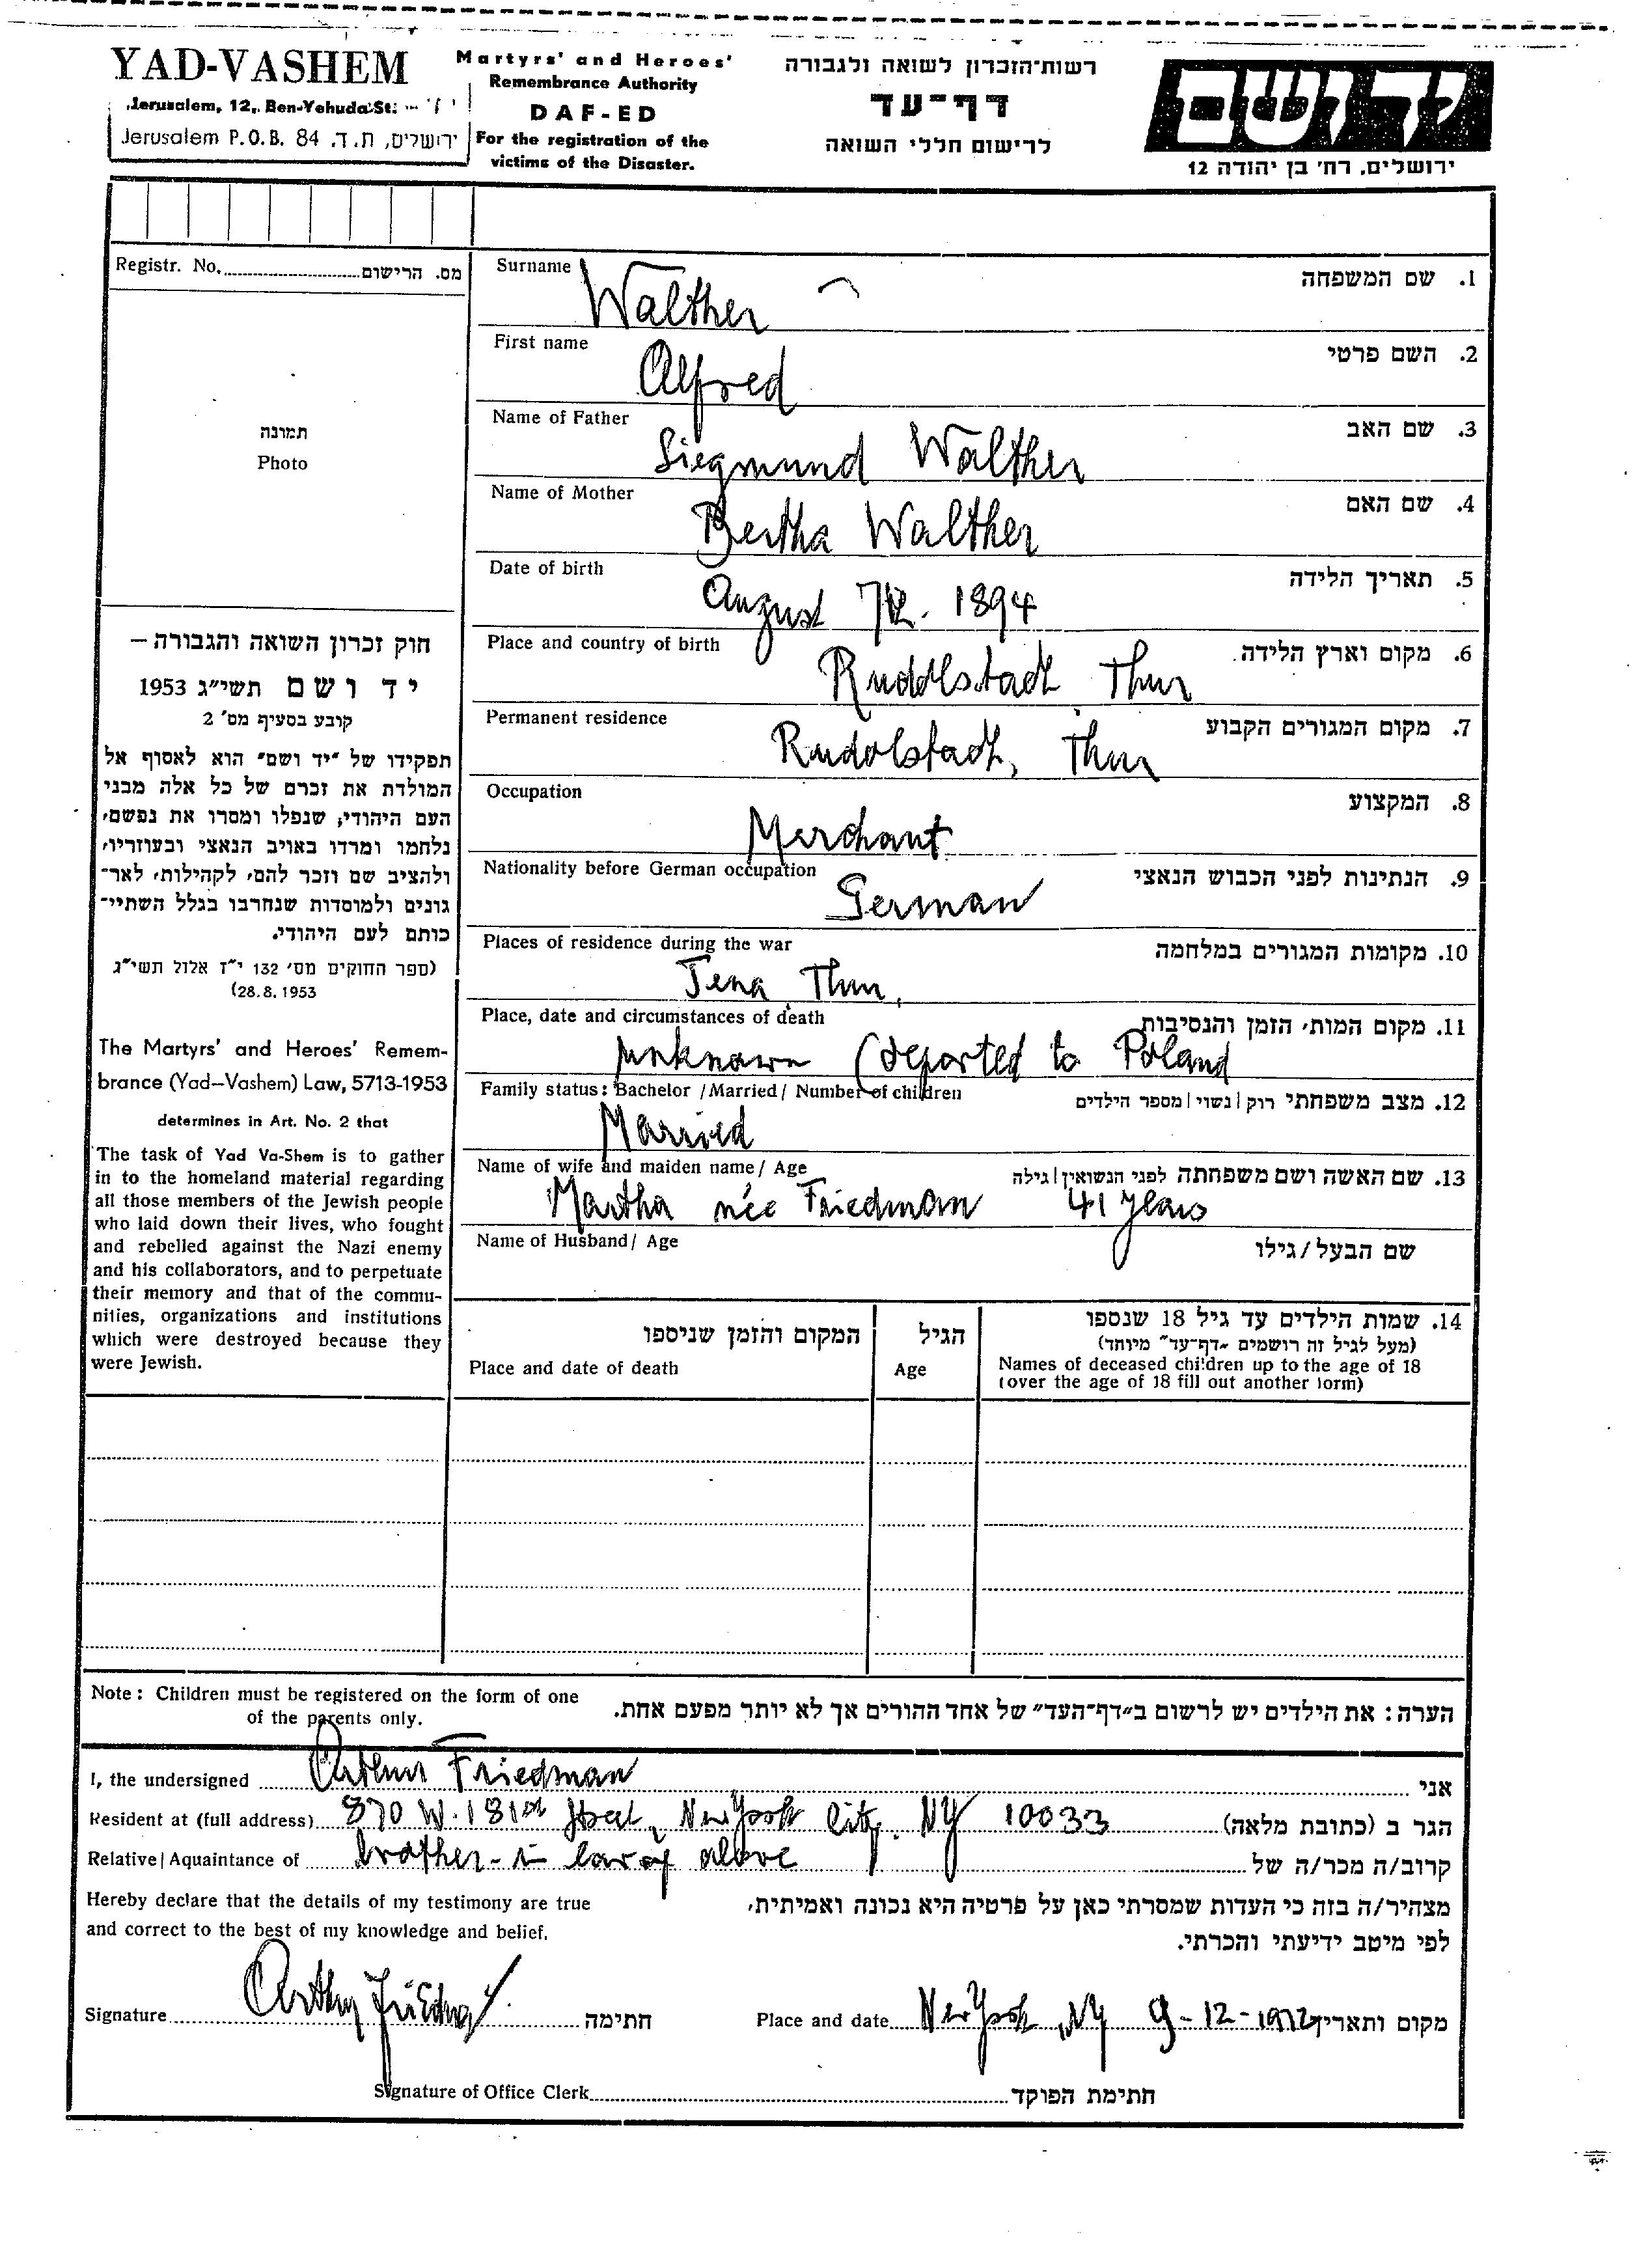 YAD-VASHEM
Jerusalem, 12, Ben-Yehuda St.
Jerusalem P.O.B. 84 ירושלים, ת.ד.
Martyrs' and Heroes'
Remembrance Authority
DAF-ED
For the registration of the
victims of the Disaster.
רשות־הזכרון לשואה ולגבורה
דף־עד
לרישום חללי השואה
יד ושם
ירושלים, רח' בן יהודה 12
Registr. No. מס. הרישום
תמונה
Photo
חוק זכרון השואה והגבורה —
יד ושם תשי״ג 1953
קובע בסעיף מס' 2
תפקידו של ״יד ושם״ הוא לאסוף אל
המולדת את זכרם של כל אלה מבני
העם היהודי, שנפלו ומסרו את נפשם,
נלחמו ומרדו באויב הנאצי ובעוזריו,
ולהציב שם וזכר להם, לקהילות, לאר־
גונים ולמוסדות שנחרבו בגלל השתיי־
כותם לעם היהודי.
(ספר החוקים מס' 132 י״ז אלול תשי״ג
28.8.1953)
The Martyrs' and Heroes' Remem-
brance (Yad–Vashem) Law, 5713-1953
determines in Art. No. 2 that
The task of Yad Va-Shem is to gather
in to the homeland material regarding
all those members of the Jewish people
who laid down their lives, who fought
and rebelled against the Nazi enemy
and his collaborators, and to perpetuate
their memory and that of the commu-
nities, organizations and institutions
which were destroyed because they
were Jewish.
Surname 1. שם המשפחה
Walther
First name 2. השם פרטי
Alfred
Name of Father 3. שם האב
Siegmund Walther
Name of Mother 4. שם האם
Bertha Walther
Date of birth 5. תאריך הלידה
August 7th. 1894
Place and country of birth 6. מקום וארץ הלידה.
Rudolstadt Thur
Permanent residence 7. מקום המגורים הקבוע
Rudolstadt, Thur
Occupation 8. המקצוע
Merchant
Nationality before German occupation 9. הנתינות לפני הכבוש הנאצי
German
Places of residence during the war 10. מקומות המגורים במלחמה
Jena Thur,
Place, date and circumstances of death 11. מקום המות, הזמן והנסיבות
unknown (deported to Poland
Family status: Bachelor / Married / Number of children 12. מצב משפחתי רוק | נשוי | מספר הילדים
Married
Name of wife and maiden name / Age 13. שם האשה ושם משפחתה לפני הנשואין | גילה
Martha née Friedman 41 years
Name of Husband / Age שם הבעל / גילו
המקום והזמן שניספו
Place and date of death
הגיל
Age
14. שמות הילדים עד גיל 18 שנספו
(מעל לגיל זה רושמים ״דף־עד״ מיוחד)
Names of deceased children up to the age of 18
(over the age of 18 fill out another form)
Note: Children must be registered on the form of one
of the parents only.
הערה: את הילדים יש לרשום ב״דף־העד״ של אחד ההורים אך לא יותר מפעם אחת.
I, the undersigned Arthur Friedman אני
Resident at (full address) 870 W. 181st Street, New York City. NY 10033 הגר ב (כתובת מלאה)
Relative | Aquaintance of brother-in law of above קרוב/ה מכר/ה של
Hereby declare that the details of my testimony are true
and correct to the best of my knowledge and belief.
מצהיר/ה בזה כי העדות שמסרתי כאן על פרטיה היא נכונה ואמיתית,
לפי מיטב ידיעתי והכרתי.
Signature Arthur Friedman חתימה
Place and date New York, NY 9-12-1972 מקום ותאריך
Signature of Office Clerk חתימת הפוקד